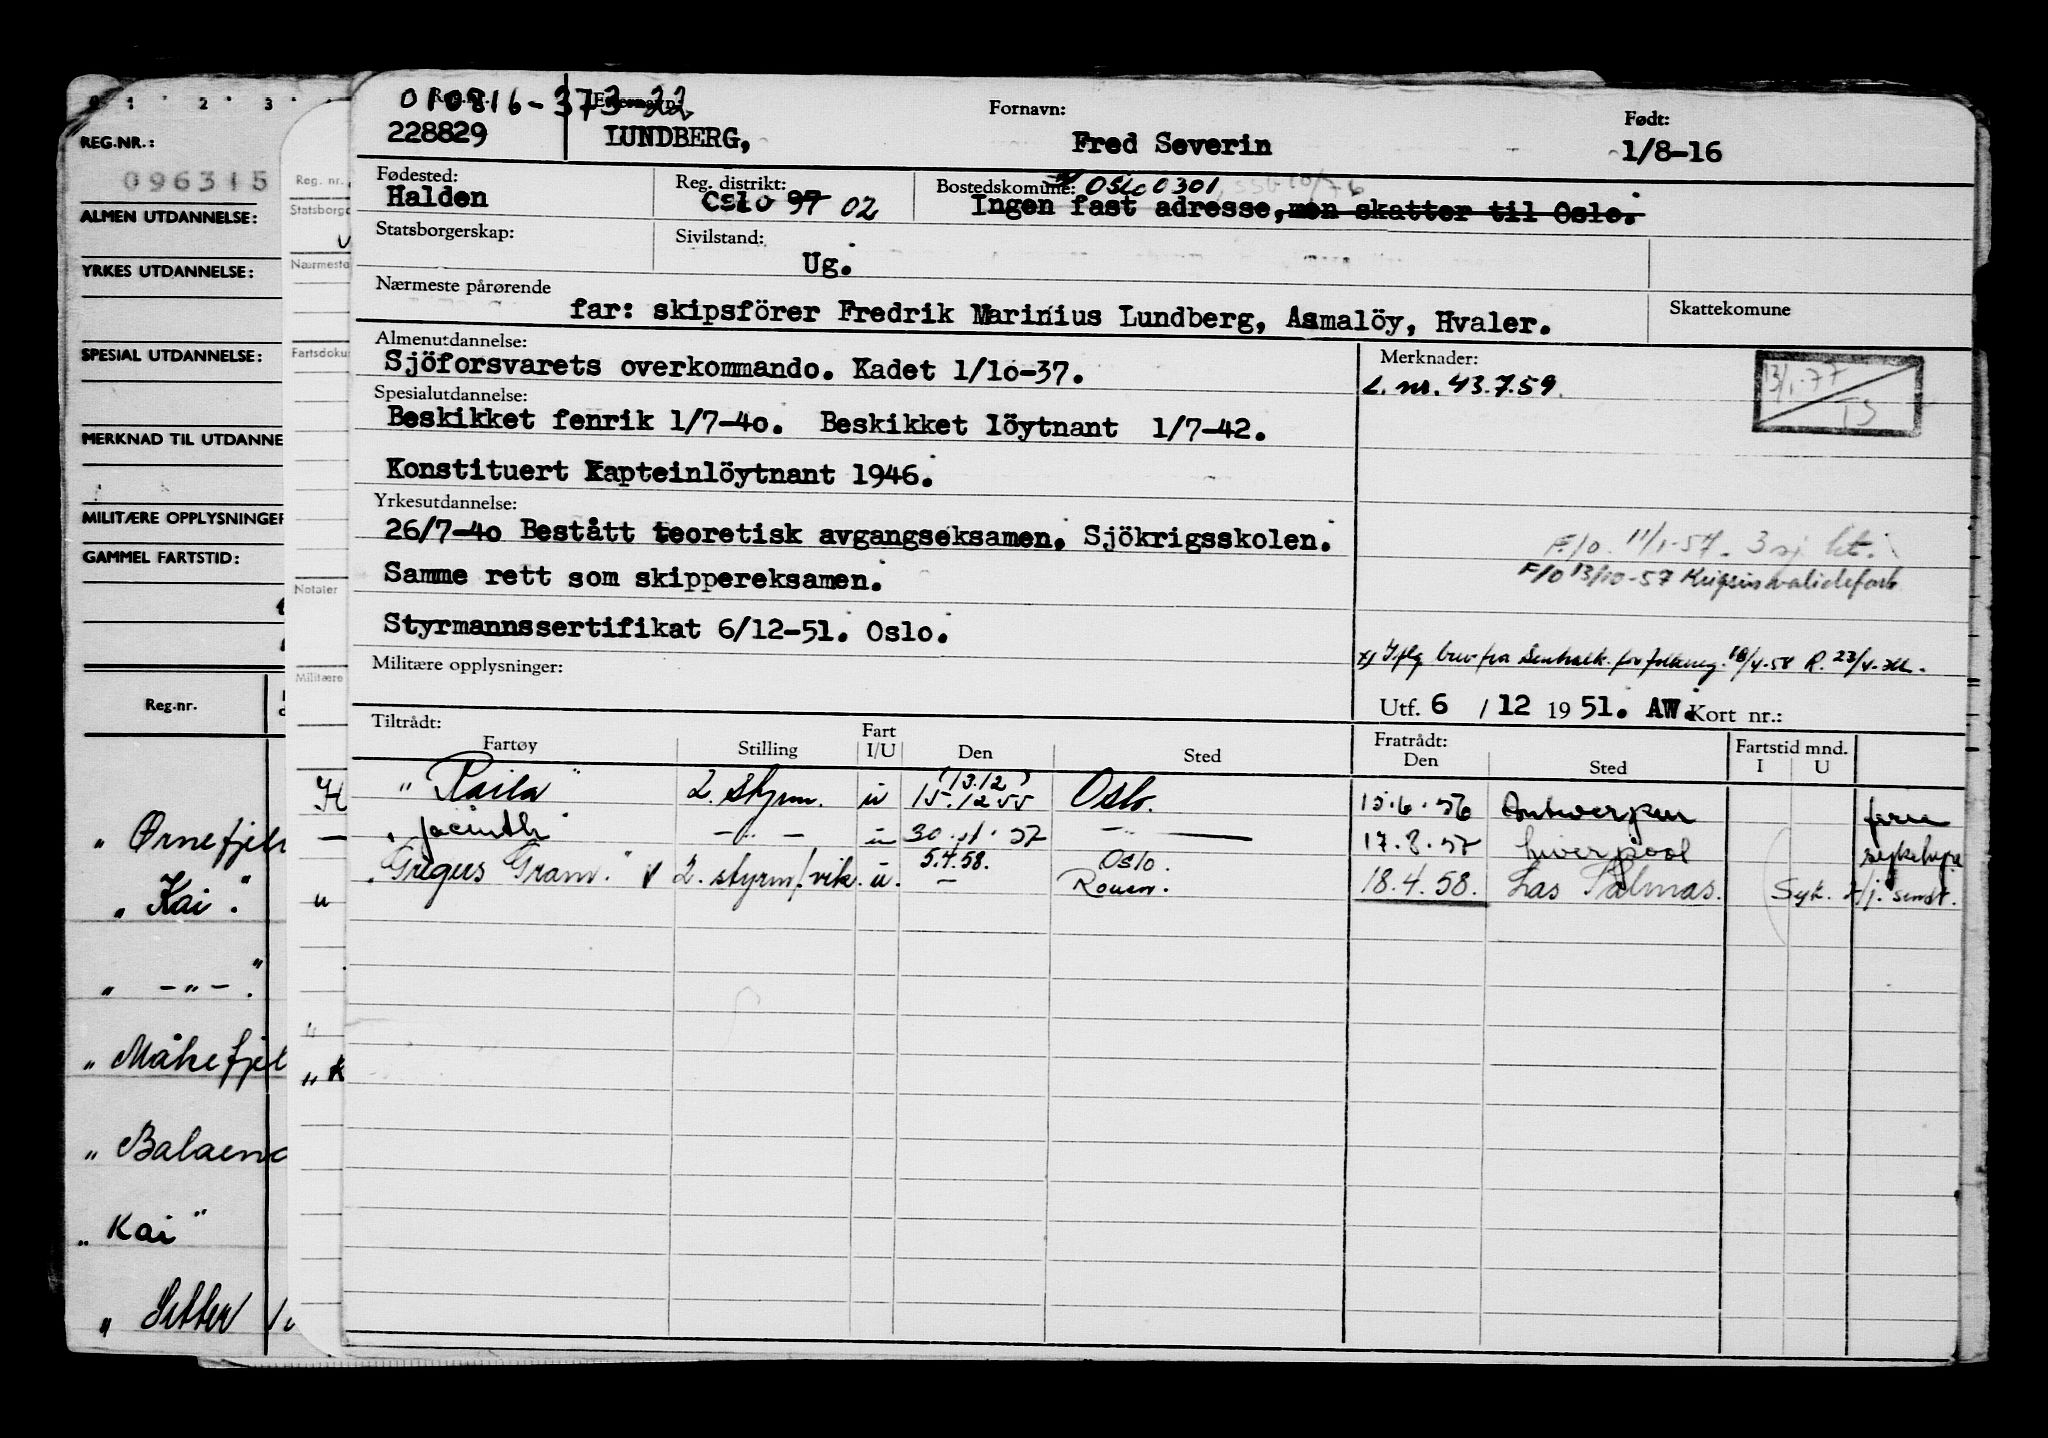 0 1 2 3
REG.NR.:
096315
ALMEN UTDANNELSE:
YRKES UTDANNELSE:
SPESIAL UTDANNELSE:
MERKNAD TIL UTDANNE
MILITÆRE OPPLYSNINGER
GAMMEL FARTSTID:
Reg.nr.
„ Ørnefjell
„ Kai".
„ -"- ."
„ Måkefjel
„ Balaena
„ Kai"
„ Setter
Reg. nr.
Statsborge
Nærmeste
Fartsdoku
Notater
Militære
010816-373 22
Reg.nr. Etternavn: Fornavn: Født:
228829 LUNDBERG, Fred Severin 1/8-16
Fødested: Reg. distrikt: Bostedskomune: Oslo 0301
Halden Oslo 97 02 Ingen fast adresse, men skatter til Oslo.
Statsborgerskap: Sivilstand:
Ug.
Nærmeste pårørende Skattekomune
far: skipsförer Fredrik Marinius Lundberg, Asmalöy, Hvaler.
Almenutdannelse: Merknader:
Sjöforsvarets overkommando. Kadet 1/10-37. L. nr. 43.7.59.
13/1.77
TS
Spesialutdannelse:
Beskikket fenrik 1/7-40. Beskikket löytnant 1/7-42.
Konstituert Kapteinlöytnant 1946.
Yrkesutdannelse:
26/7-40 Bestått teoretisk avgangseksamen. Sjökrigsskolen.
F/o. 11/1-57. 3
Samme rett som skippereksamen.
F/o 13/10-57
Styrmannssertifikat 6/12-51. Oslo.
x) Iflg brev fra Sentralk. for folkereg. 18/4-58 R. 23/4
Militære opplysninger:
Utf. 6 / 12 1951. AW. Kort nr.:
Tiltrådt: Fratrådt: Fartstid mnd.
Fartøy Stilling Fart I/U Den Sted Den Sted I U
(13.12)
2. styrm. u 15.12.55 Oslo. 15.6.56 Antwerpen ferie
„ Jacinth" -"- u 30.1.57 -"- 17.8.57 Liverpool
5.4.58. Oslo.
„Gregers Gram." v 2. styrm/vik. u. - Rouen. 18.4.58. Las Palmas. Syk.